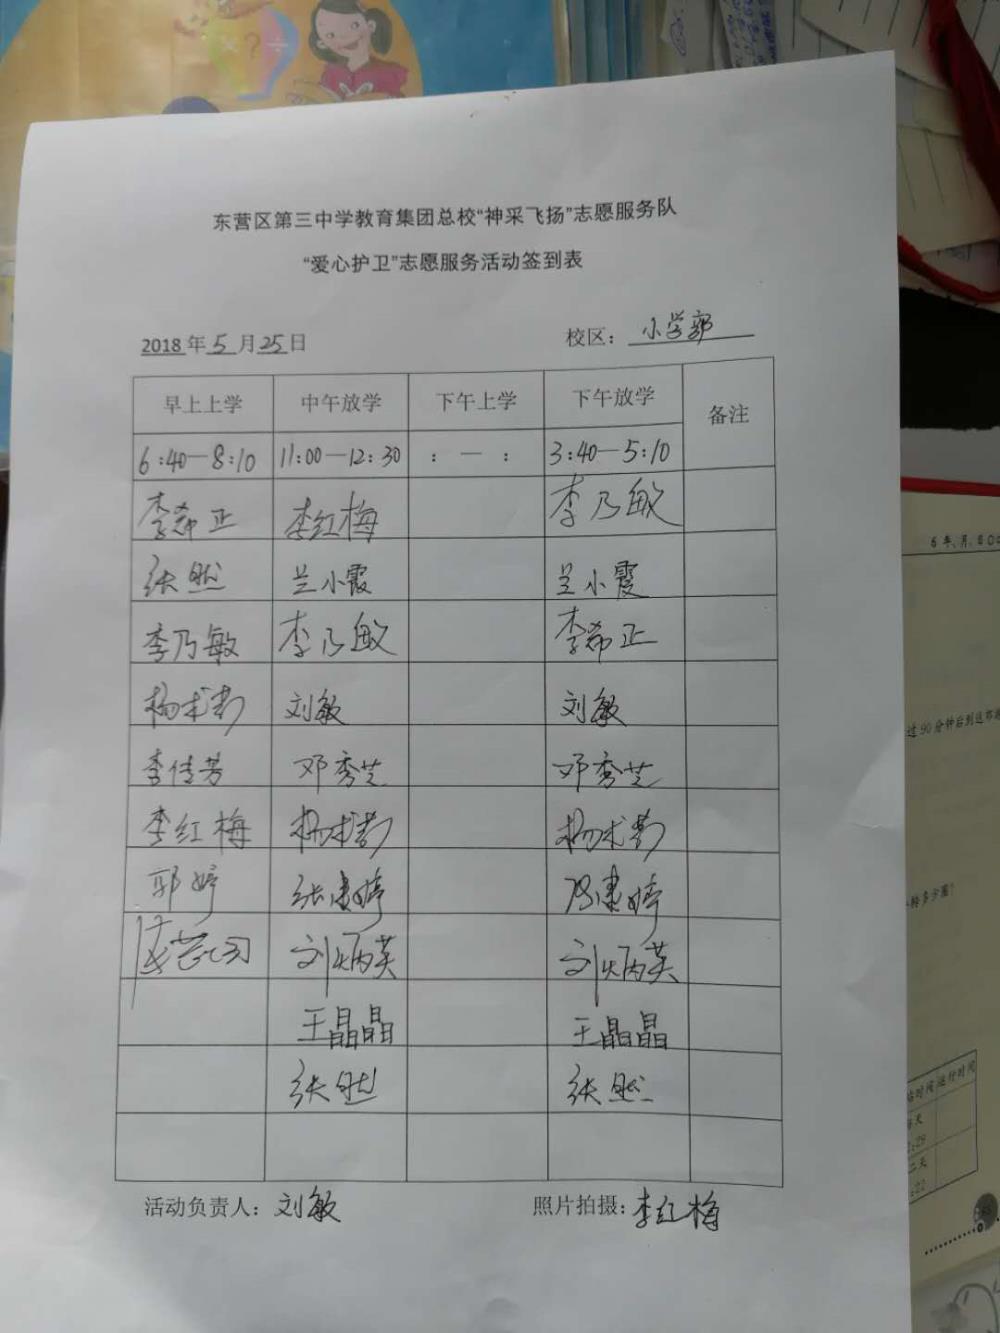 东营区第三中学教育集团总校“神采飞扬”志愿服务队
“爱心护卫”志愿服务活动签到表
2018年5月25日 校区：小学部
早上上学 中午放学 下午上学 下午放学 备注
6:40—8:10 11:00—12:30 : — : 3:40—5:10
李希正 李红梅 李乃敏
张然 兰小霞 兰小霞
李乃敏 李乃敏 李希正
刘敏 刘敏
李传芳 邓秀芝 邓秀芝
李红梅
郭婷 张建婷
刘炳英 刘炳英
王晶晶 王晶晶
张然 张然
活动负责人：刘敏 照片拍摄：李红梅
6 年、月、日
过90分钟后到达
运行时间